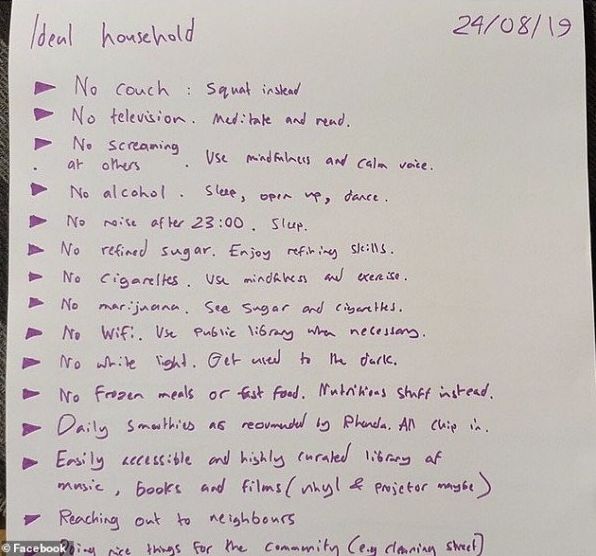 Ideal household 24/08/19
No couch : Squat instead
No television. Meditate and read.
No screaming
at others . Use mindfulness and calm voice.
No alcohol . Sleep, open up, dance.
No noise after 23:00 . Sleep.
No refined sugar. Enjoy refining skills.
No cigarettes. Use mindfulness and exercise.
No marijuana. See sugar and cigarettes.
No Wifi. Use public library when necessary.
No white light. Get used to the dark.
No frozen meals or fast food. Nutritious stuff instead.
Daily smoothies as recommended by Rhonda. All chip in.
Easily accessible and highly curated library of
music, books and films (vinyl & projector maybe)
Reaching out to neighbours
Doing nice things for the community (e.g cleaning street)
© Facebook